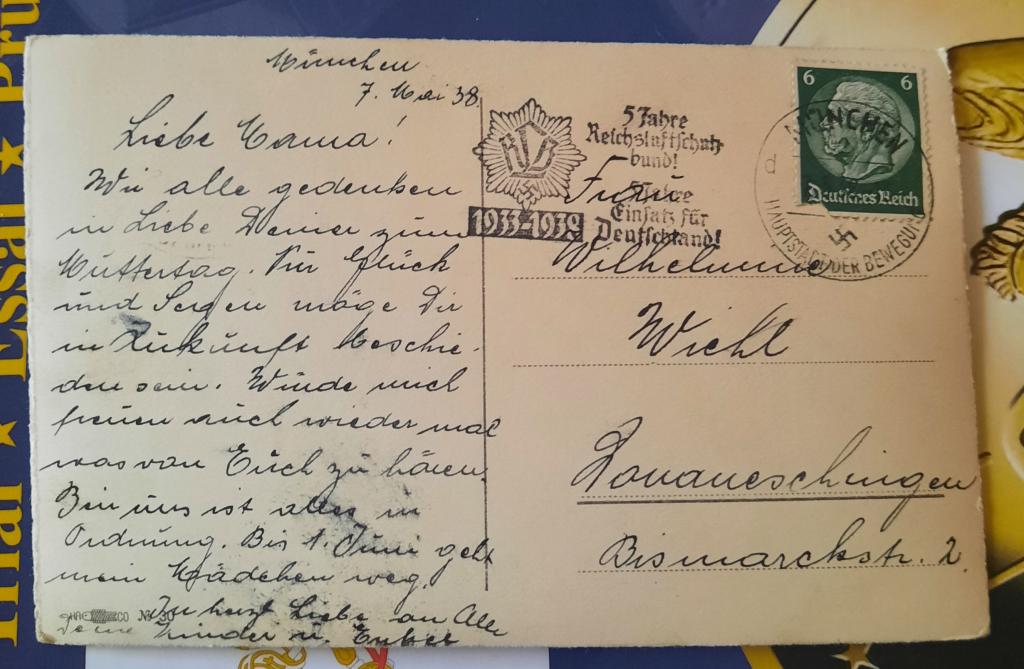 München
7. Mai 38.
Liebe Mama!
Wir alle gedenken
in Liebe Deiner zum
Muttertag. Nur Glück
und Segen möge Dir
in Zukunft beschie-
den sein. Würde mich
freuen auch wieder mal
was von Euch zu hören.
Bei uns ist alles in
Ordnung. Bis 1. Juni geht
mein Mädchen weg.
In herzl. Liebe an Alle
Deine Kinder u. Enkel
CO No 30
RLB
1933-1938
5 Jahre
Reichsluftschutz
bund!
5 Jahre
Einsatz für
Deutschland!
6 6
Deutsches Reich
MÜNCHEN
d
HAUPTSTADT DER BEWEGUNG
Frau
Wilhelmine
Wiehl
Donaueschingen
Bismarckstr. 2.
Inal ★ Essai ★ Pru